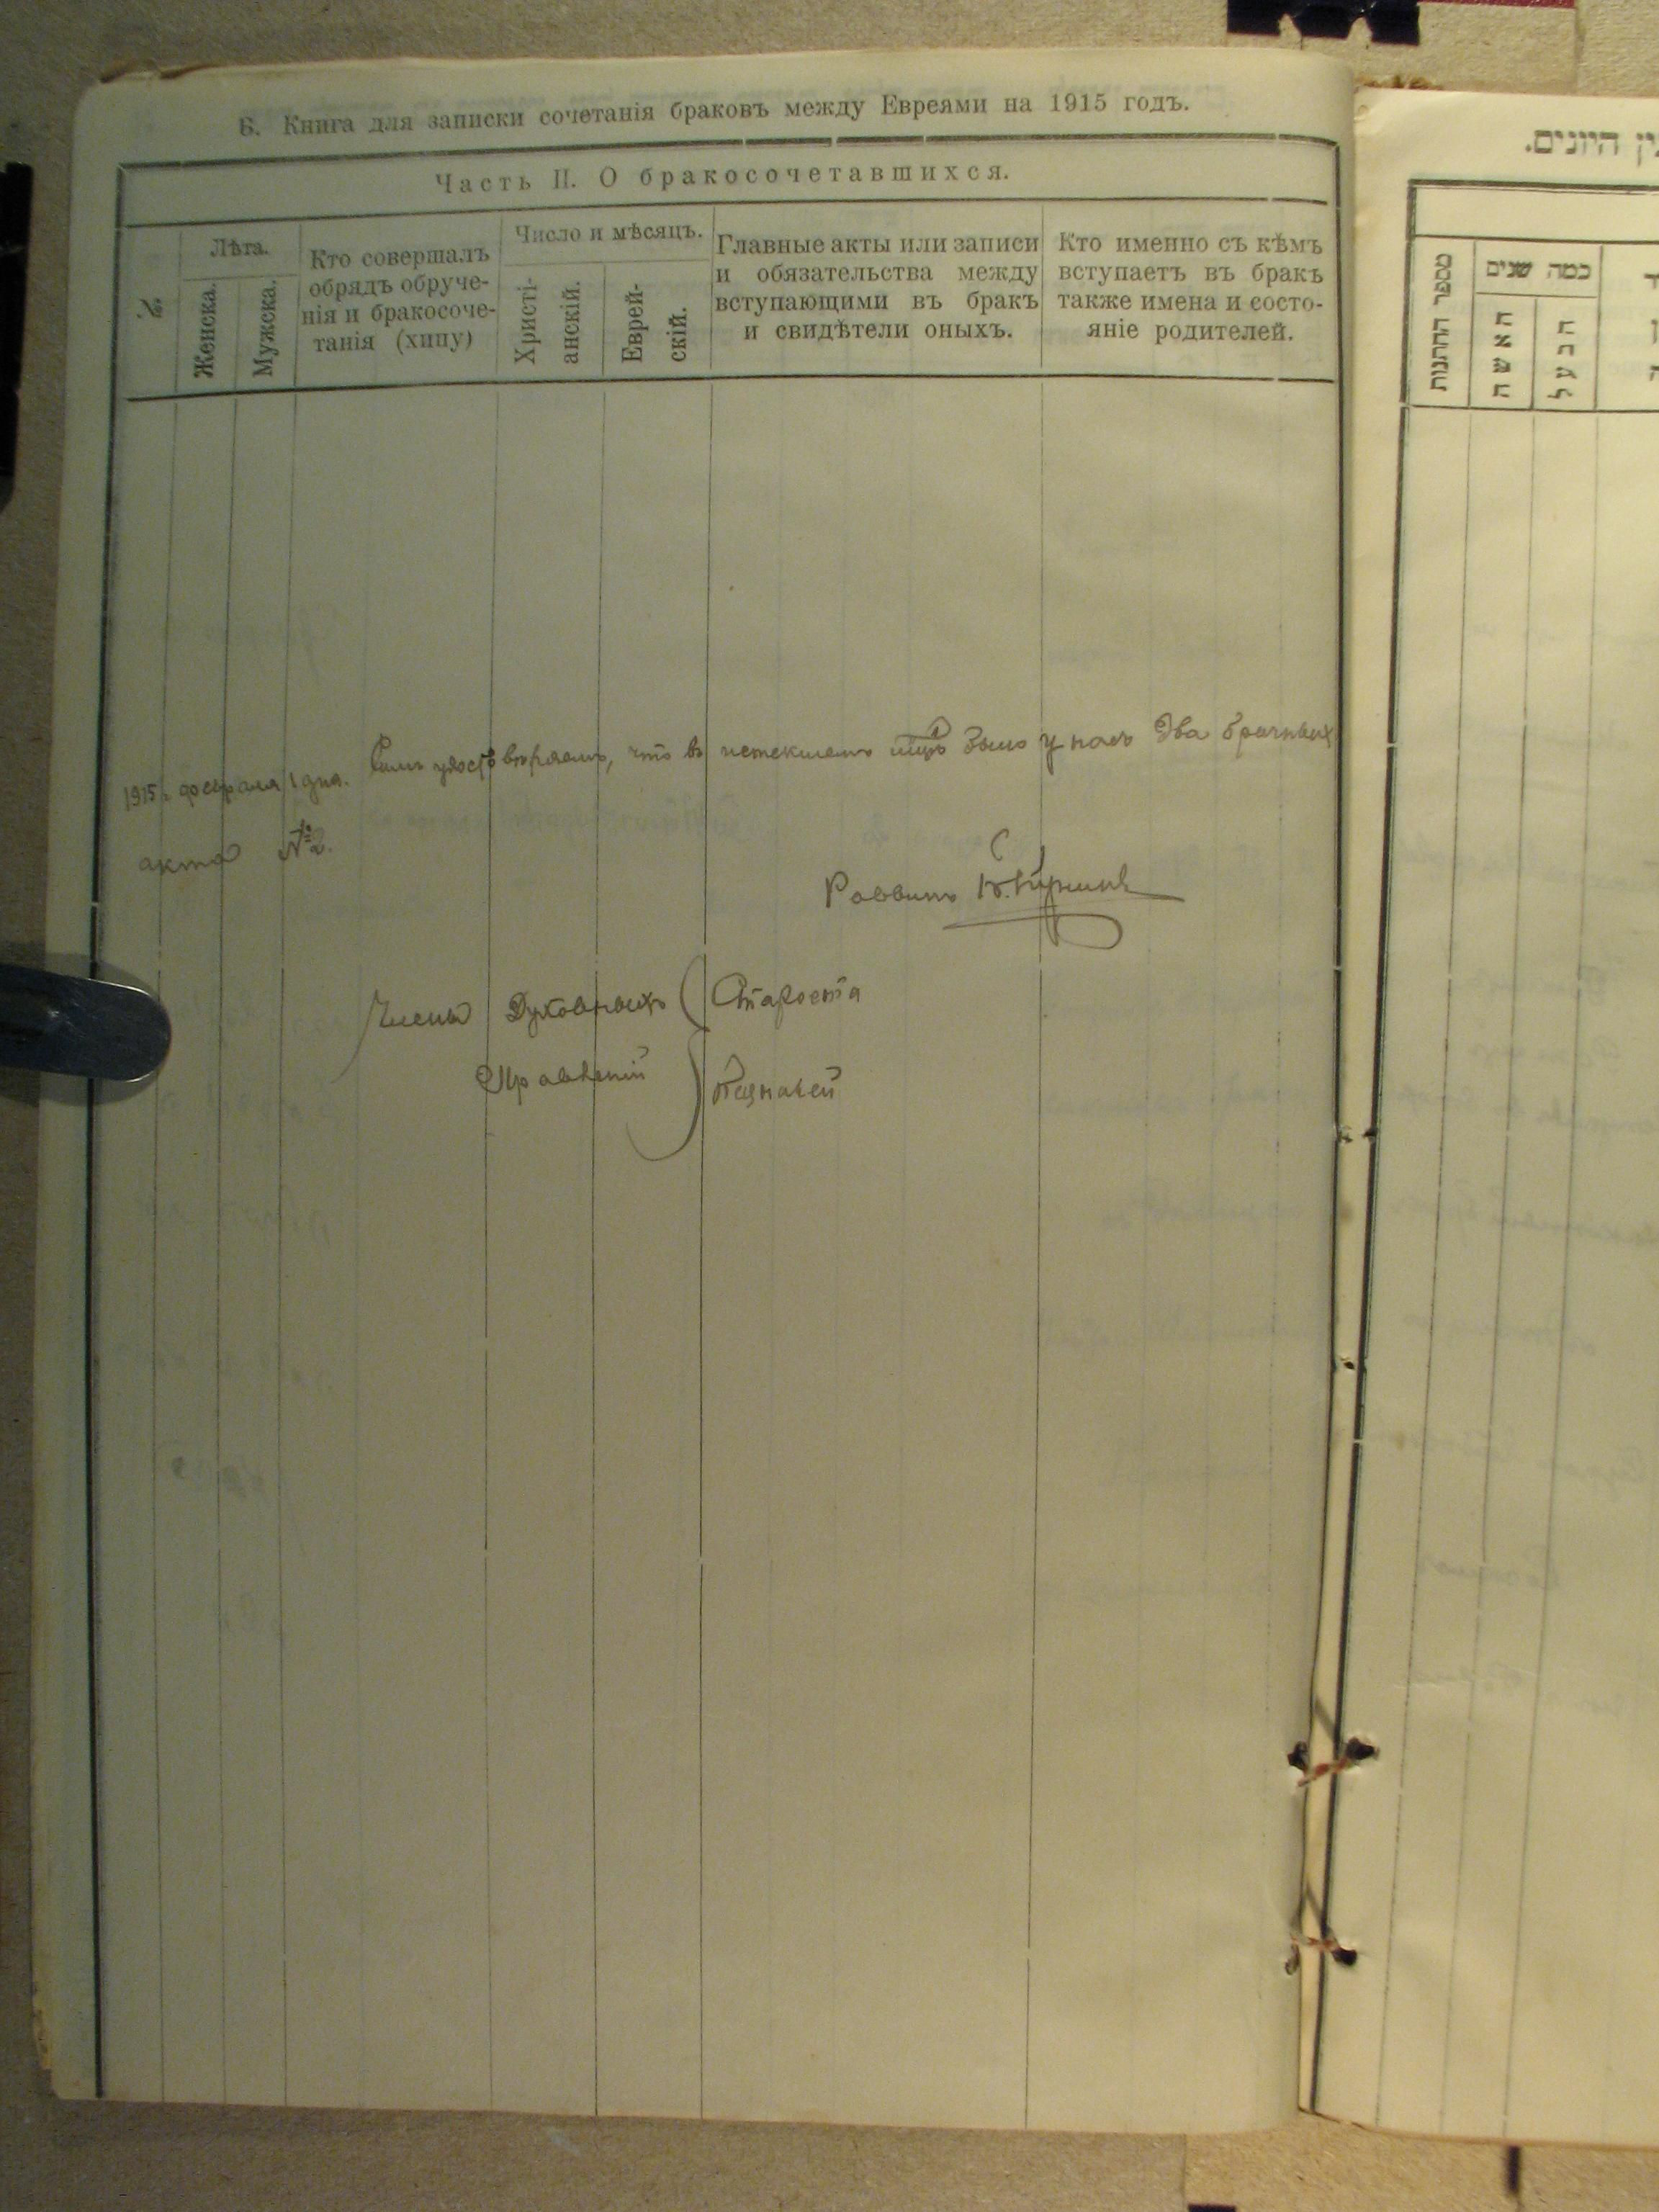 6. Книга для записки сочетанія браковъ между Евреями на 1915 годъ.
Часть II. О бракосочетавшихся.
№
Лѣта.
Женска.
Мужска.
Кто совершалъ
обрядъ обруче-
нія и бракосоче-
танія (хипу)
Число и мѣсяцъ.
Христі-
анскій.
Еврей-
скій.
Главные акты или записи
и обязательства между
вступающими въ бракъ
и свидѣтели оныхъ.
Кто именно съ кѣмъ
вступаетъ въ бракъ
также имена и состо-
яніе родителей.
1915 г. февраля 1 дня. Симъ удостовѣряемъ, что въ истекшемъ было у насъ два брачныхъ
акта № 2.
Раввинъ
Члены Духовныхъ Староста
Правленій Казначей
ין היונים.
מספר החתנות
כמה שנים
האשה
הבעל